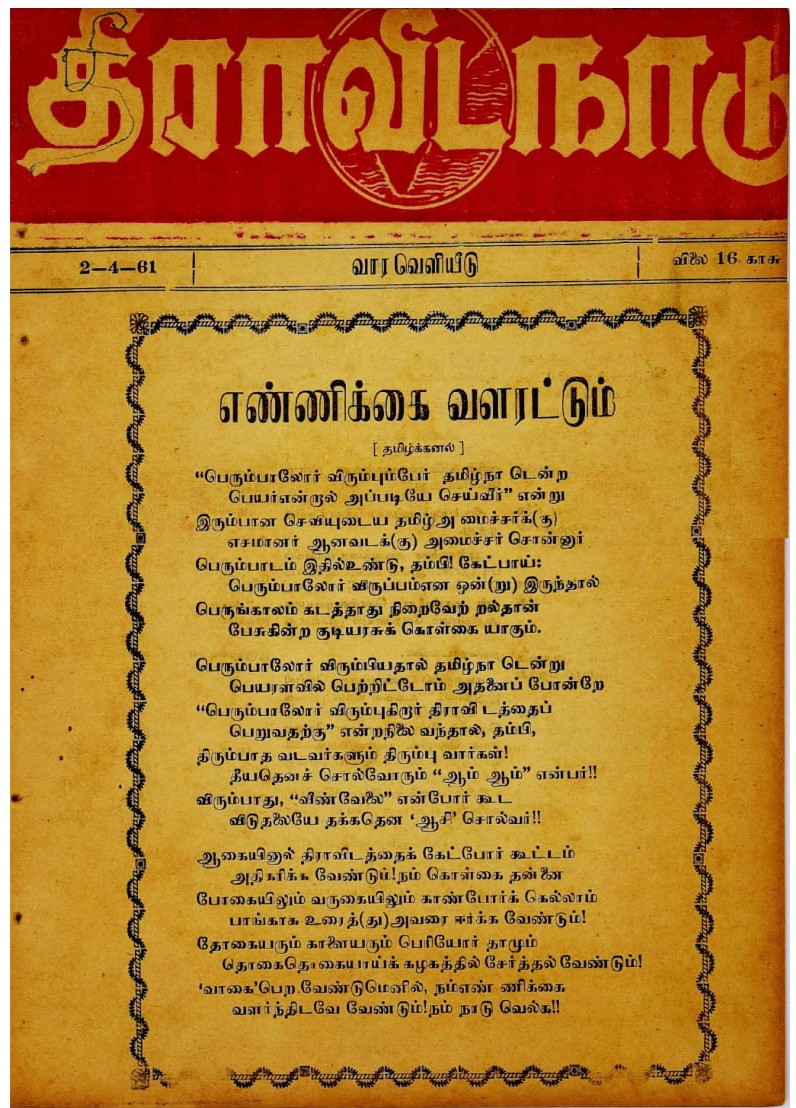 திராவிடநாடு
2-4-61
வார வெளியீடு
விலை 16 காசு
எண்ணிக்கை வளரட்டும்
[ தமிழ்க்கனல் ]
“பெரும்பாலோர் விரும்பும்பேர் தமிழ்நா டென்ற
பெயர்என்றால் அப்படியே செய்வீர்” என்று
இரும்பான செவியுடைய தமிழ்அ மைச்சர்க்(கு)
எசமானர் ஆனவடக்(கு) அமைச்சர் சொன்னார்
பெரும்பாடம் இதில்உண்டு, தம்பி! கேட்பாய்:
பெரும்பாலோர் விருப்பம்என ஒன்(று) இருந்தால்
பெருங்காலம் கடத்தாது நிறைவேற் றல்தான்
பேசுகின்ற குடியரசுக் கொள்கை யாகும்.
பெரும்பாலோர் விரும்பியதால் தமிழ்நா டென்று
பெயரளவில் பெற்றிட்டோம் அதனைப் போன்றே
“பெரும்பாலோர் விரும்புகிறார் திராவி டத்தைப்
பெறுவதற்கு” என்றநிலை வந்தால், தம்பி,
திரும்பாத வடவர்களும் திரும்பு வார்கள்!
தீயதெனச் சொல்வோரும் “ஆம் ஆம்” என்பர்!!
விரும்பாது, “வீண்வேலை” என்போர் கூட
விடுதலையே தக்கதென ‘ஆசி’ சொல்வர்!!
ஆகையினால் திராவிடத்தைக் கேட்போர் கூட்டம்
அதிகரிக்க வேண்டும்!நம் கொள்கை தன்னை
போகையிலும் வருகையிலும் காண்போர்க் கெல்லாம்
பாங்காக உரைத்(து)அவரை ஈர்க்க வேண்டும்!
தோகையரும் காளையரும் பெரியோர் தாமும்
தொகைதொகையாய்க் கழகத்தில் சேர்த்தல் வேண்டும்!
‘வாகை’பெற வேண்டுமெனில், நம்எண் ணிக்கை
வளர்ந்திடவே வேண்டும்!நம் நாடு வெல்க!!